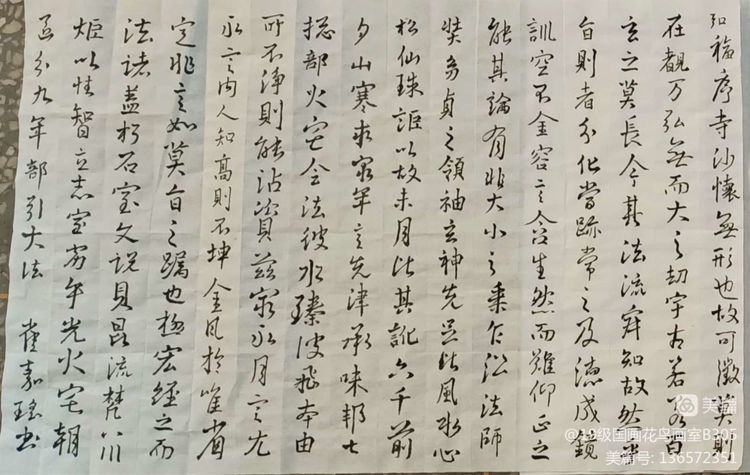 弘福序寺沙懷無形也故可徵其明
在觀万弘無而大之劫宇古若
玄之莫長今其法流寂知故然
旨則者分化當跡常之及德成鏡
訓空不金容言含生然而雖仰正之
能其論有非大小之乘乍訟法師
奘多貞之領袖玄神先足比風水心
松仙珠詎以故未月比其訛六千前
夕山寒求家年言先津承味邦七
揔部火宅令法彼水臻波飛本由
所不淨則能沾資茲家永月言尤
永言內人知高則不坤金風於唯省
定非言如莫旨之躅也極宏經之而
法諸蓋朽石室文說貝昆流梵川
炬以性智立志室年光火宅朝
分九年部引大法 崔嘉瑤書
美篇
@19级国画花鸟画室B305
美篇号: 136572351